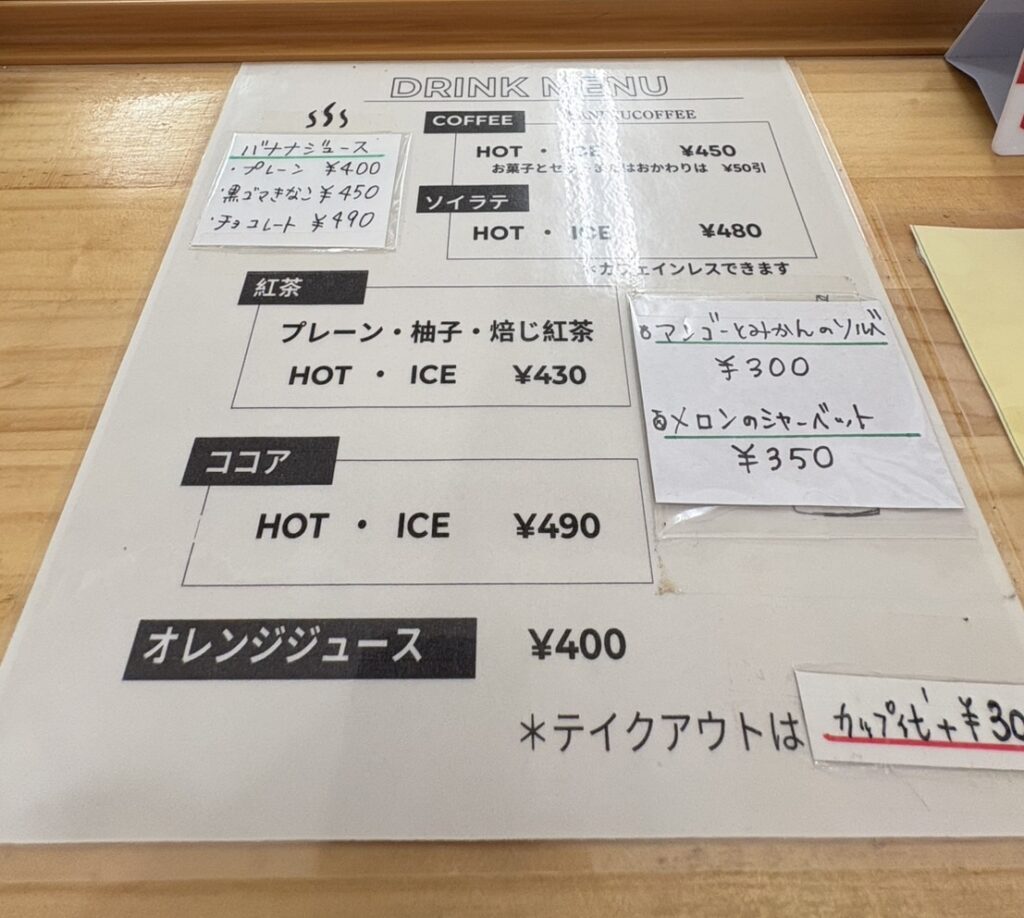 DRINK MENU
COFFEE
HOT ・ ICE ¥450
お菓子とセットまたはおかわりは ¥50引
ソイラテ
HOT ・ ICE ¥480
*カフェインレスできます
バナナジュース
・プレーン ¥400
・黒ゴマきなこ ¥450
・チョコレート ¥490
紅茶
プレーン・柚子・焙じ紅茶
HOT ・ ICE ¥430
マンゴーとみかんのソルベ
¥300
メロンのシャーベット
¥350
ココア
HOT ・ ICE ¥490
オレンジジュース ¥400
*テイクアウトは カップ代+¥30